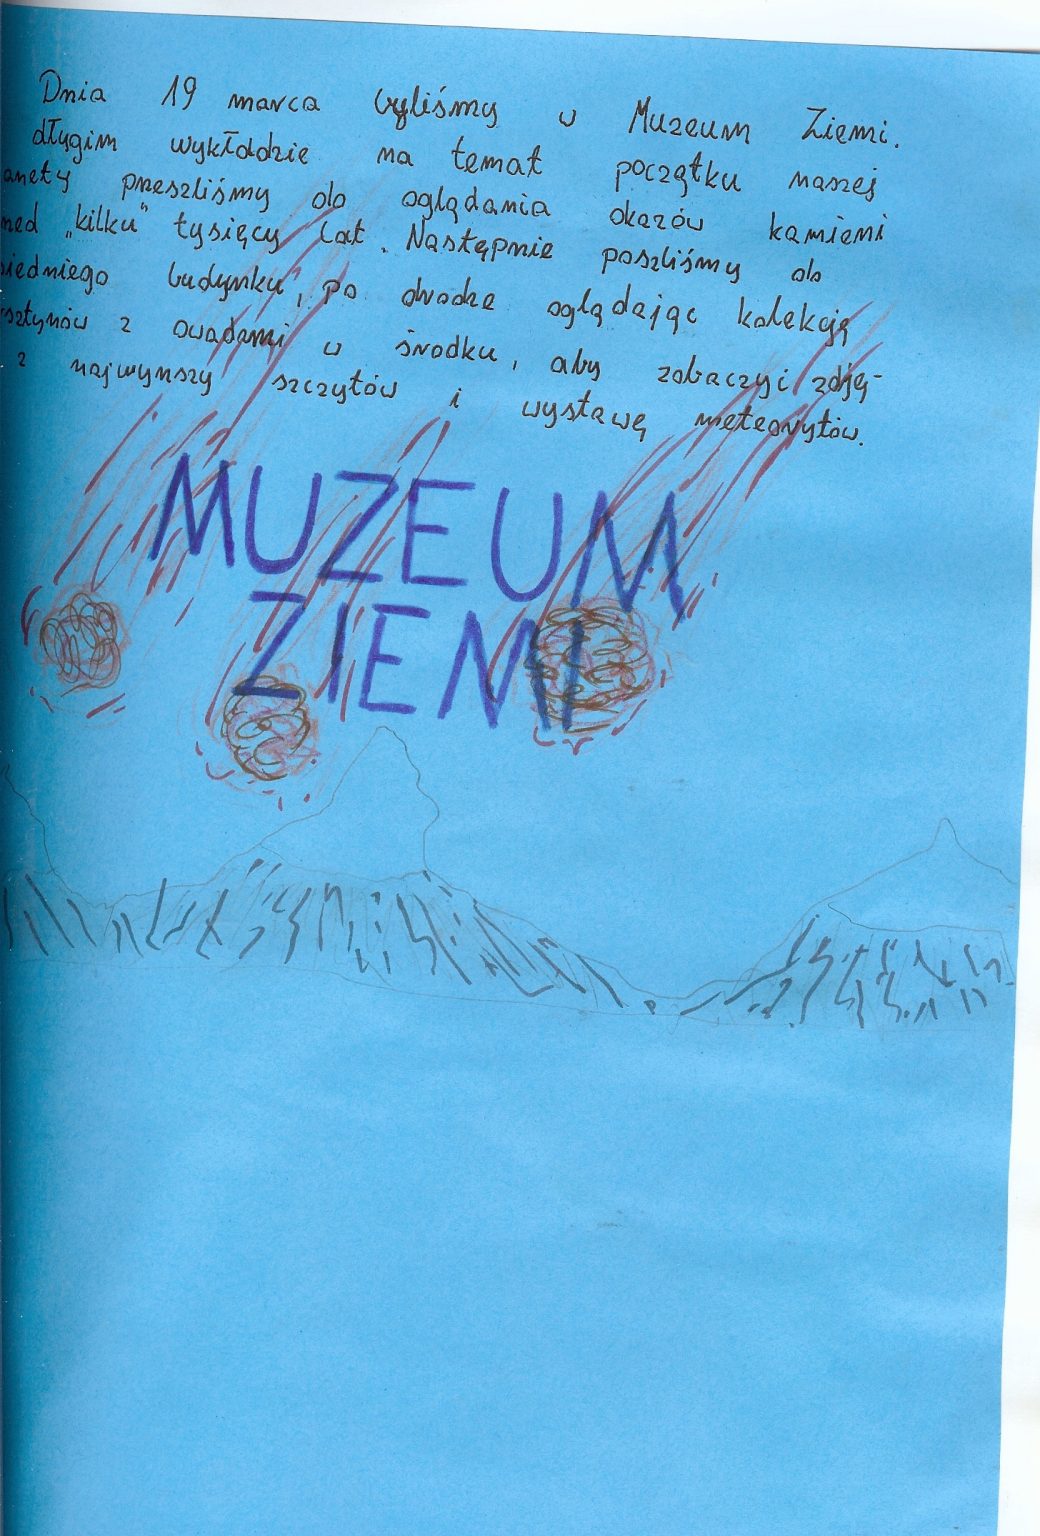 Dnia 19 marca byliśmy w Muzeum Ziemi.
długim wykłodzie na temat początku naszej
anety przeszliśmy do oglądania okazów kamieni
zed „kilku" tysięcy lat. Następnie poszliśmy do
siedniego budynku, po drodze oglądając kolekcję
rsztynów z owadami w środku, aby zobaczyć zdję-
z najwyższy szczytów i wystawę meteorytów.
MUZEUM
ZIEMI